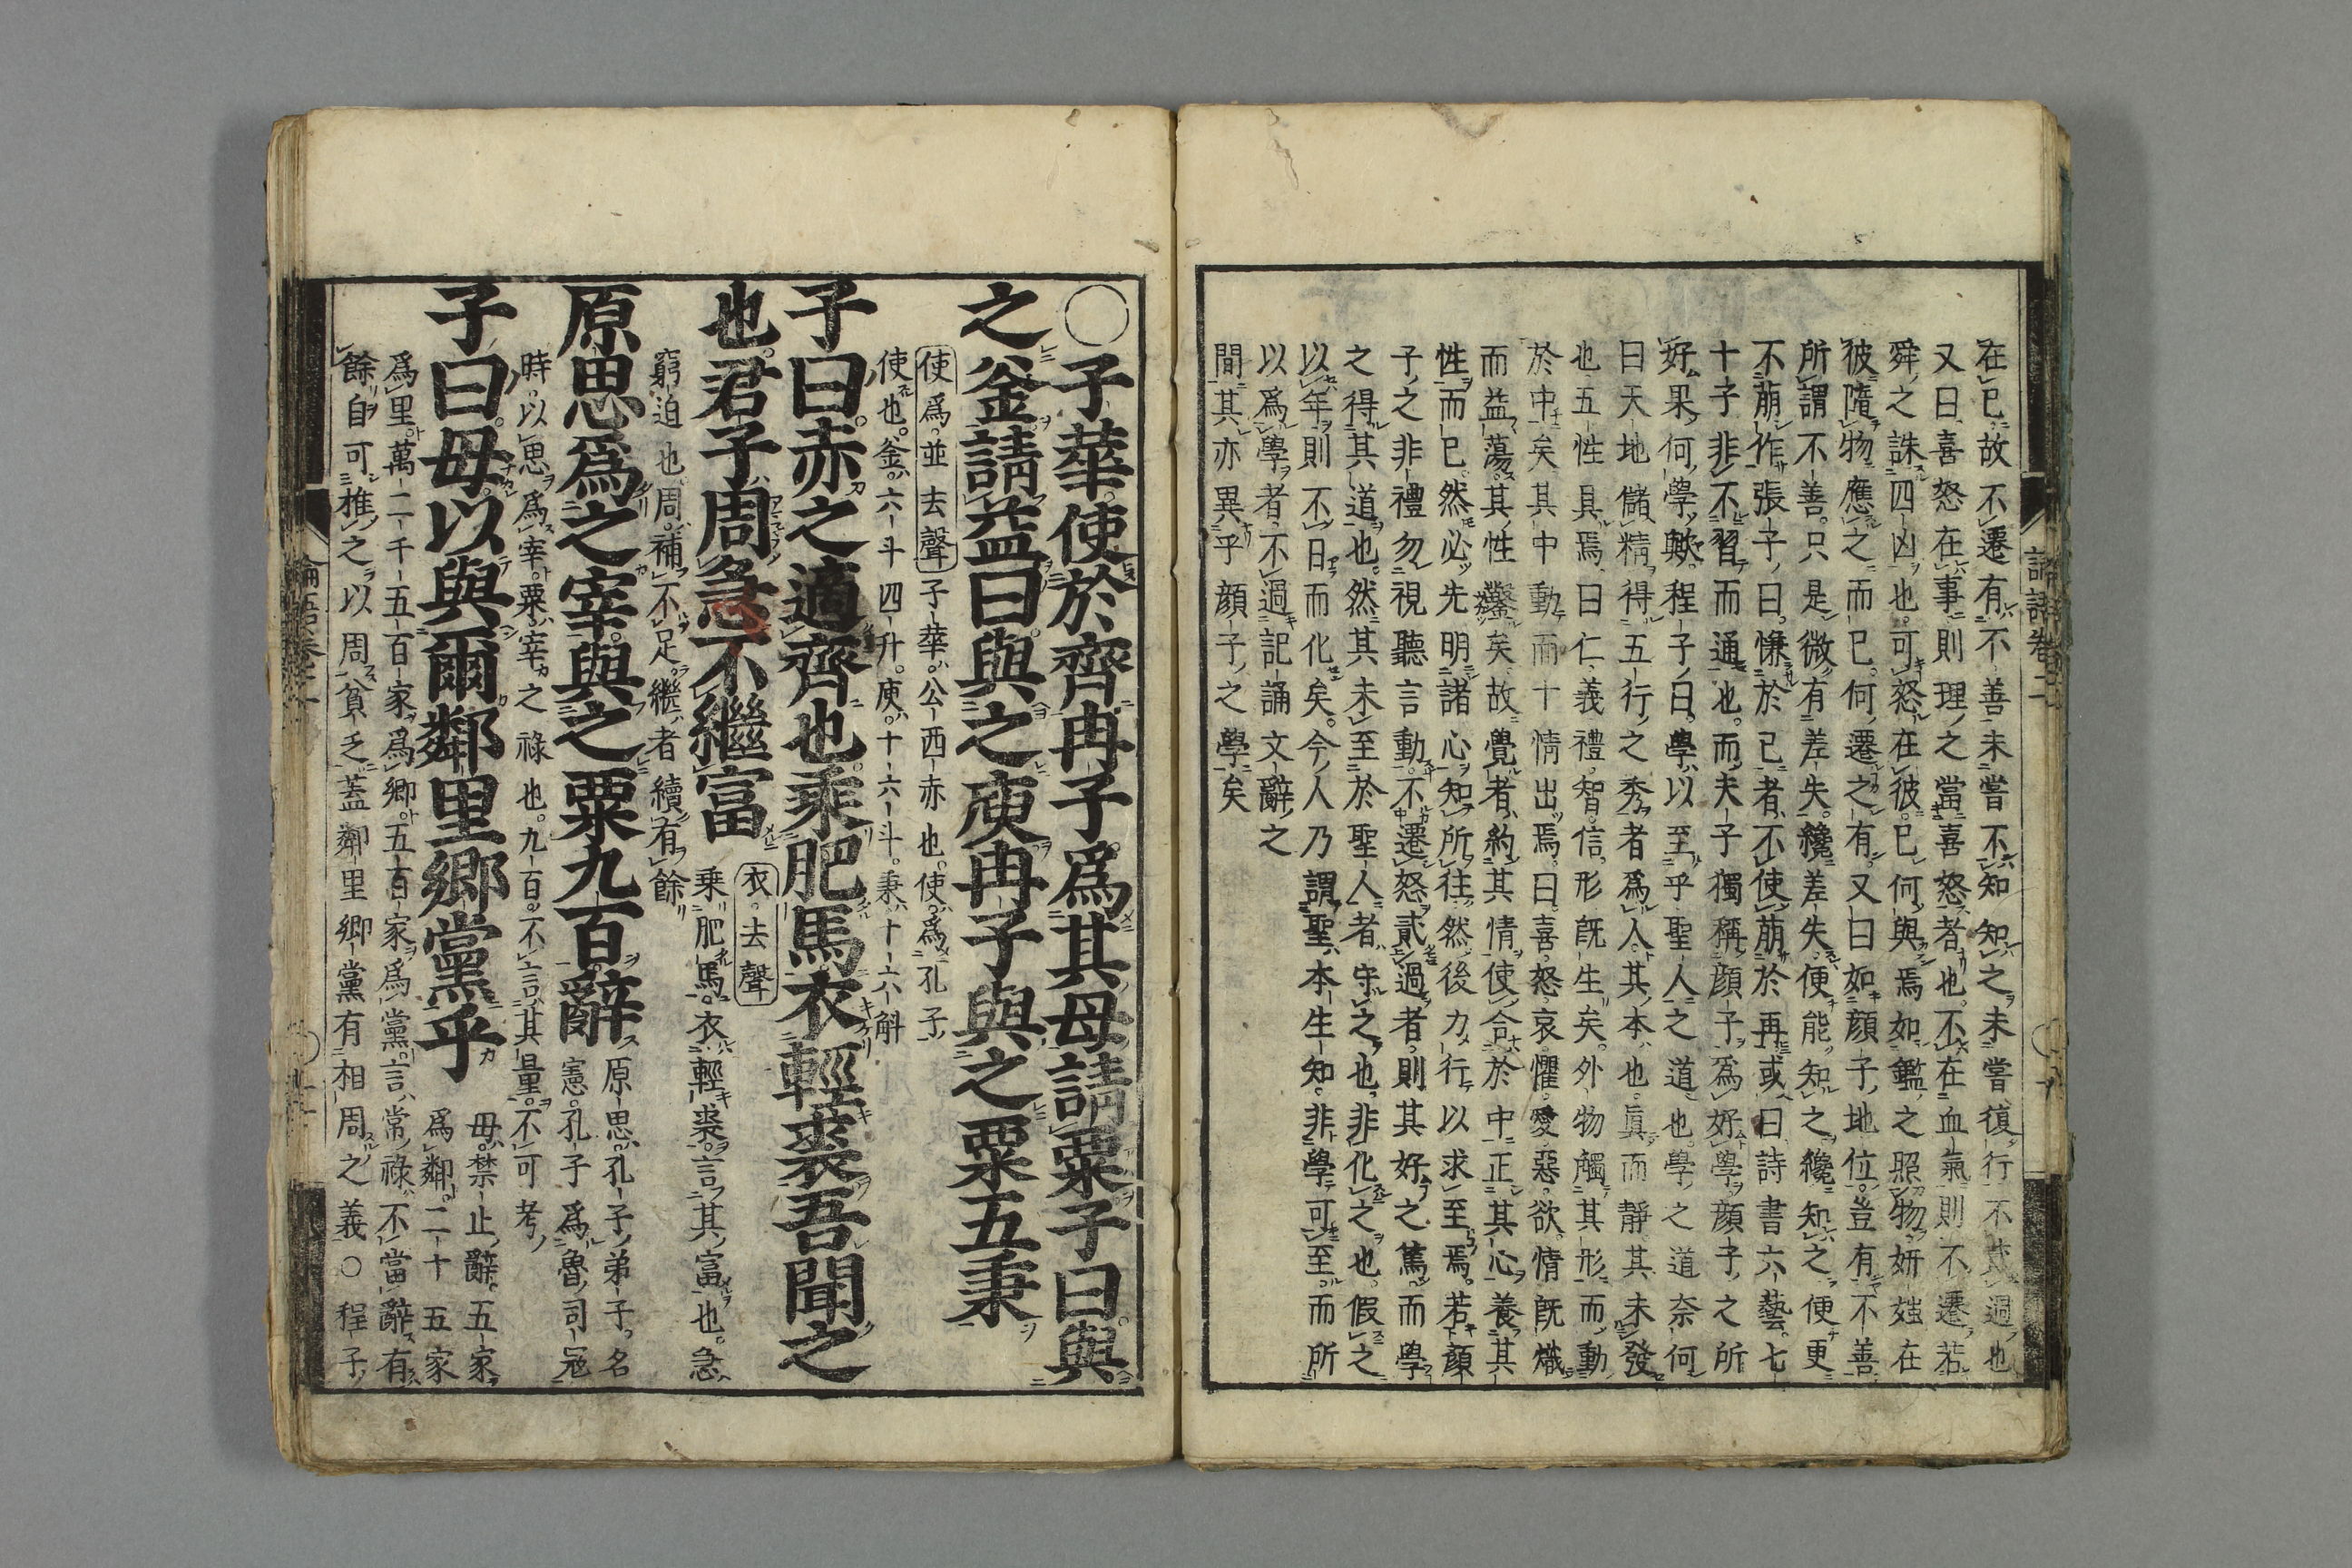 在己故不遷有不善未嘗不知知之未嘗復行不貳過也
又曰喜怒在事則理之當喜怒者也不在血氣則不遷若
舜之誅四凶也可怒在彼己何與焉如鑑之照物妍媸在
彼隨物應之而已何遷之有又曰如顏子地位豈有不善
所謂不善只是微有差失纔差失便能知之纔知之便更
不萠作張子曰慊於己者不使萠於再或曰詩書六藝七
十子非不習而通也而夫子獨稱顏子爲好學顏子之所
好果何學歟程子曰學以至乎聖人之道也學之道奈何
曰天地儲精得五行之秀者爲人其本也眞而靜其未發
也五性具焉曰仁義禮智信形既生矣外物觸其形而動
於中矣其中動而十情出焉曰喜怒哀懼愛惡欲情既熾
而益蕩其性鑿矣故覺者約其情使合於中正其心養其
性而已然必先明諸心知所往然後力行以求至焉若顏
子之非禮勿視聽言動不遷怒貳過者則其好之篤而學
之得其道也然其未至於聖人者守之也非化之也假之
以年則不日而化矣今人乃謂聖本生知非學可至而所
以爲學者不過記誦文辭之
間其亦異乎顏子之學矣
論語卷二
○子華使於齊冉子爲其母請粟子曰與
之釜請益曰與之庾冉子與之粟五秉
使爲並去聲子華公西赤也使爲孔子
使也釜六斗四升庾十六斗秉十六斛
子曰赤之適齊也乘肥馬衣輕裘吾聞之
也君子周急不繼富
衣去聲
乘肥馬衣輕裘言其富也急
窮迫也周補不足繼者續有餘
原思爲之宰與之粟九百辭
原思孔子弟子名
憲孔子爲魯司寇
時以思爲宰粟宰之祿也九百不言其量不可考
子曰毋以與爾鄰里鄉黨乎
毋禁止辭五家
爲鄰二十五家
爲里萬二千五百家爲鄉五百家爲黨言常祿不當辭有
餘自可推之以周貧乏蓋鄰里鄉黨有相周之義○程子
論語卷二